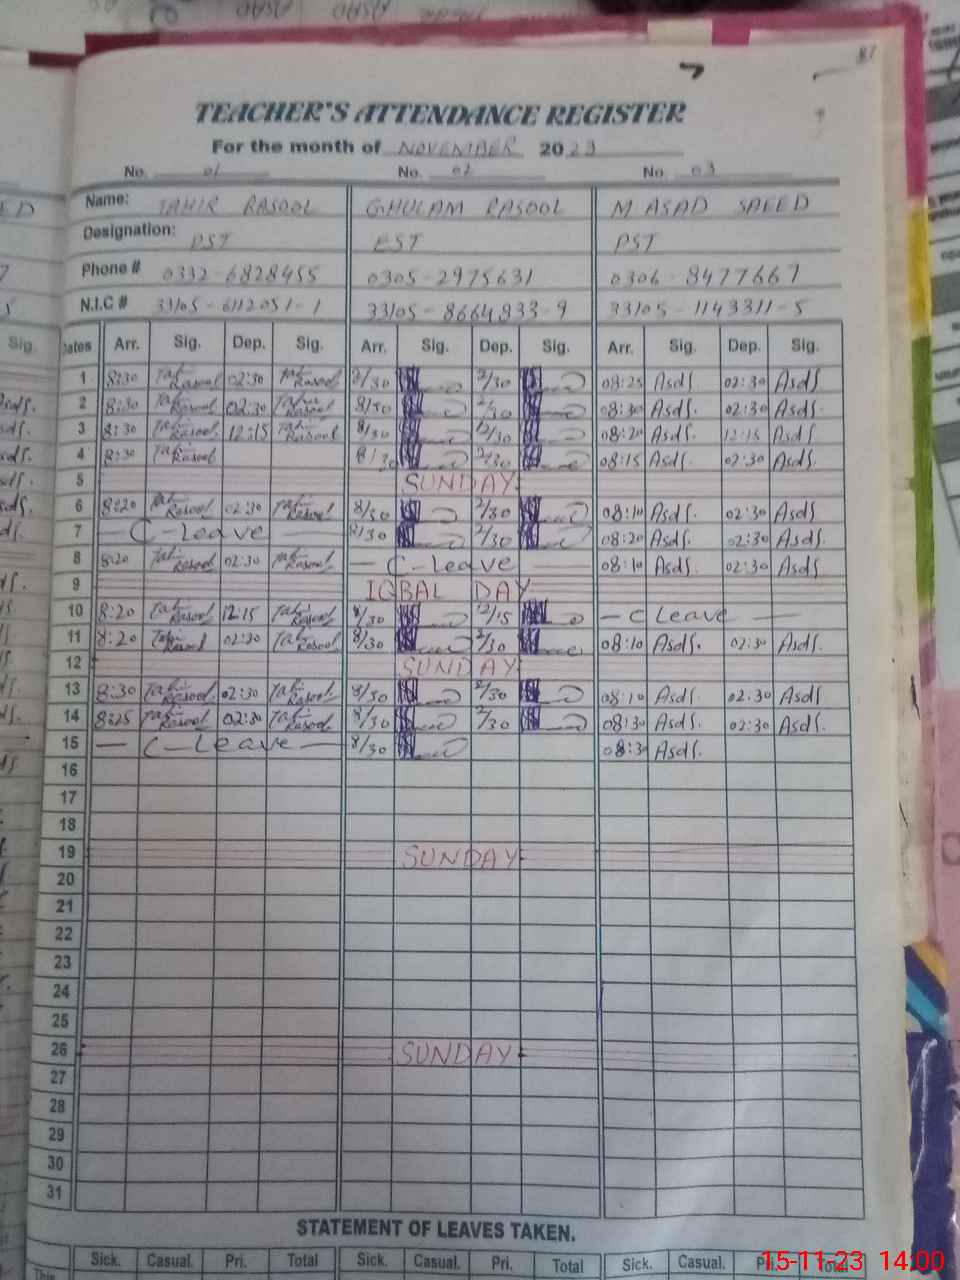 87
TEACHER'S ATTENDANCE REGISTER
For the month of NOVEMBER 2023
No. 01 No. 02 No. 03
Name: TAHIR RASOOL GHULAM RASOOL M ASAD SAEED
Designation: PST EST PST
Phone # 0332-6828455 0305-2975631 0306-8477667
N.I.C # 33105-6112051-1 33105-8664933-9 33105-1143311-5
Dates Arr. Sig. Dep. Sig. Arr. Sig. Dep. Sig. Arr. Sig. Dep. Sig.
1 8:30 Tahir Rasool 02:30 Tahir Rasool 8/30 2/30 08:25 Asds 02:30 Asds
2 8:30 Tahir Rasool 02:30 Tahir Rasool 8/30 2/30 08:30 Asds. 02:30 Asds.
3 8:30 Tahir Rasool 12:15 Tahir Rasool 8/30 12/30 08:20 Asds. 12:15 Asds
4 8:30 Tahir Rasool 8/30 2/30 08:15 Asds. 02:30 Asds.
5 SUNDAY
6 8:20 Tahir Rasool 02:30 Tahir Rasool 8/30 2/30 08:10 Asds. 02:30 Asds
7 — C-leave — 8/30 2/30 08:20 Asds. 02:30 Asds.
8 8:20 Tahir Rasool 02:30 Tahir Rasool — C-leave — 08:10 Asds. 02:30 Asds.
9 IQBAL DAY
10 8:20 Tahir Rasool 12:15 Tahir Rasool 8/30 12/15 — C Leave —
11 8:20 Tahir Rasool 02:30 Tahir Rasool 8/30 2/30 08:10 Asds. 02:30 Asds.
12 SUNDAY
13 8:30 Tahir Rasool 02:30 Tahir Rasool 8/30 2/30 08:10 Asds. 02:30 Asds
14 8:25 Tahir Rasool 02:30 Tahir Rasool 8/30 2/30 08:30 Asds. 02:30 Asds.
15 — C-Leave — 8/30 08:3 Asds.
16
17
18
19 SUNDAY
20
21
22
23
24
25
26 SUNDAY
27
28
29
30
31
STATEMENT OF LEAVES TAKEN.
Sick. Casual. Pri. Total Sick. Casual. Pri. Total Sick. Casual. Pri. Total
This
15-11-23 14:00